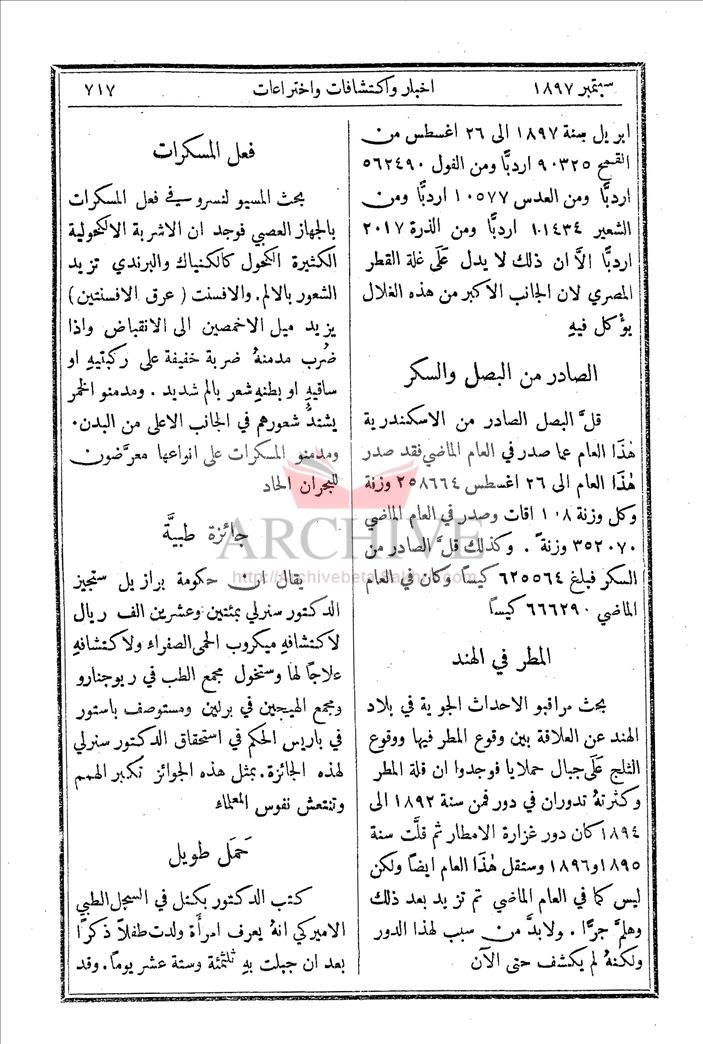 سبتمبر ١٨٩٧
اخبار واكتشافات واختراعات
٧١٧
ابريل سنة ١٨٩٧ الى ٢٦ اغسطس من
القمح ٩٠٣٢٥ اردبًّا ومن الفول ٥٦٢٤٩٠
اردبًّا ومن العدس ١٠٥٧٧ اردبًّا ومن
الشعير ١٠١٤٣٤ اردبًّا ومن الذرة ٢٠١٧
اردبًّا الاَّ ان ذلك لا يدل عَلَى غلة القطر
المصري لان الجانب الأكبر من هذه الغلال
يؤكل فيهِ
الصادر من البصل والسكر
قلَّ البصل الصادر من الاسكندرية
هٰذا العام عما صدر في العام الماضي فقد صدر
هٰذا العام الى ٢٦ اغسطس ٢٥٨٦٦٤ وزنة
وكل وزنة ١٠٨ اقات وصدر في العام الماضي
٣٥٢٠٧٠ وزنةً . وكذلك قلَّ الصادر من
السكر فبلغ ٦٢٥٥٦٤ كيسًا وكان في العام
الماضي ٦٦٦٢٩٠ كيسًا
المطر في الهند
بحث مراقبو الاحداث الجوية في بلاد
الهند عن العلاقة بين وقوع المطر فيها ووقوع
الثلج عَلَى جبال حملايا فوجدوا ان قلة المطر
وكثرتهُ تدوران في دور فمن سنة ١٨٩٢ الى
١٨٩٤ كان دور غزارة الامطار ثم قلَّت سنة
١٨٩٥ و١٨٩٦ وستقل هٰذا العام ايضًا ولكن
ليس كما في العام الماضي ثم تزيد بعد ذلك
وهلمَّ جرًّا . ولابدَّ من سبب لهذا الدور
ولكنهُ لم يكشف حتى الآن
فعل المسكرات
بحث المسيو لنسرو في فعل المسكرات
بالجهاز العصبي فوجد ان الاشربة الالكحولية
الكثيرة الكحول كالكنياك والبرندي تزيد
الشعور بالالم. والافسنت ( عرق الافسنتين )
يزيد ميل الاخمصين الى الانقباض واذا
ضُرب مدمنهُ ضربة خفيفة على ركبتيهِ او
ساقيهِ او بطنهِ شعر بالم شديد . ومدمنو الخمر
يشتدُّ شعورهم في الجانب الاعلى من البدن.
ومدمنو المسكرات على انواعها معرَّضون
للبحران الحاد
جائزة طبيَّة
يقال ان حكومة برازيل ستجيز
الدكتور سنرلي بمئتين وعشرين الف ريال
لاكتشافهِ ميكروب الحمى الصفراء ولاكتشافهِ
علاجًا لها وستخول مجمع الطب في ريوجنارو
ومجمع الهيجين في برلين ومستوصف باستور
في باريس الحكم في استحقاق الدكتور سنرلي
لهذه الجائزة. بمثل هذه الجوائز تكبر الهمم
وتنتعش نفوس العلماء
حَمَل طويل
كتب الدكتور بكتل في السجل الطبي
الاميركي انهُ يعرف امرأة ولدت طفلاً ذكرًا
بعد ان حبلت بهِ ثلثمئة وستة عشر يومًا. وقد
ARCHIVE